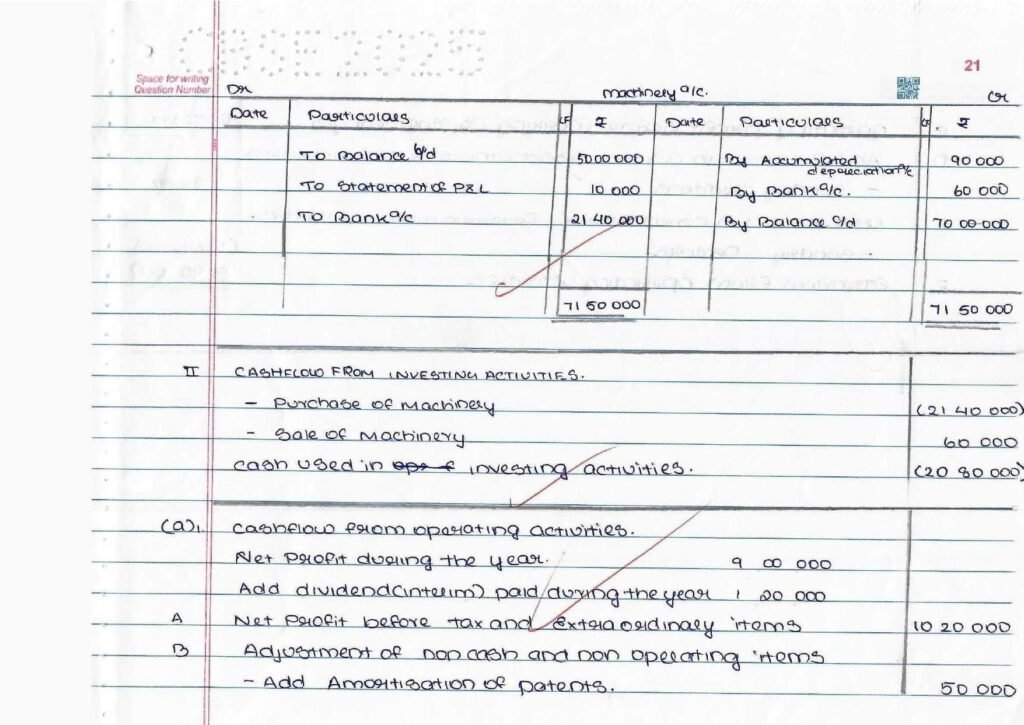 CBSE 2025
21
Space for writing
Question Number
Dr Machinery a/c. Cr
Date Particulars LF ₹ Date Particulars LF. ₹
To Balance b/d 5000 000 By Accumulated depreciation a/c 90 000
To Statement of P&L 10 000 By Bank a/c. 60 000
To Bank a/c 21 40 000 By Balance c/d 70 00 000
71 50 000 71 50 000
II CASHFLOW FROM INVESTING ACTIVITIES.
- Purchase of Machinery (21 40 000)
- Sale of Machinery 60 000
cash used in investing activities. (20 80 000)
(a)1. Cashflow from operating activities.
Net Profit during the year. 9 00 000
Add dividend(interim) paid during the year 1 20 000
A Net Profit before tax and extraordinary items 10 20 000
B Adjustment of non cash and non operating items
- Add Amortisation of patents. 50 000